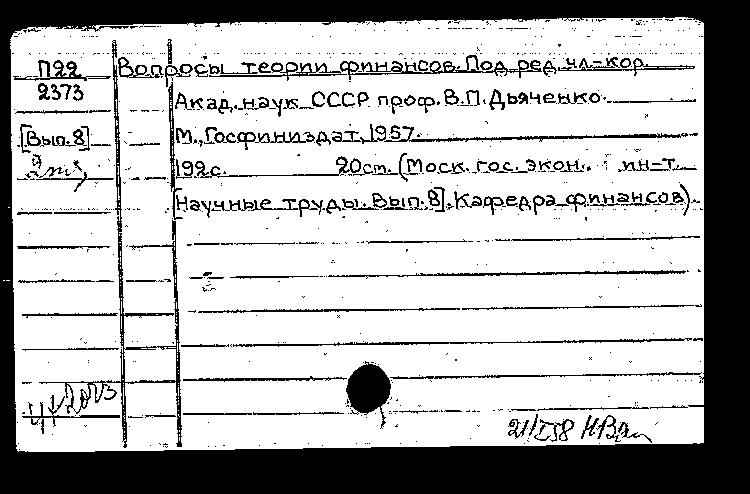 П22 Вопросы теории финансов. Под ред. чл-кор.
2373 Акад. наук СССР проф. В.П. Дьяченко.
[Вып. 8] М., Госфиниздат, 1957.
2 экз 192 с. 20 см. (Моск. гос. экон. ин-т.
[Научные труды. Вып. 8]. Кафедра финансов).
21/I 58